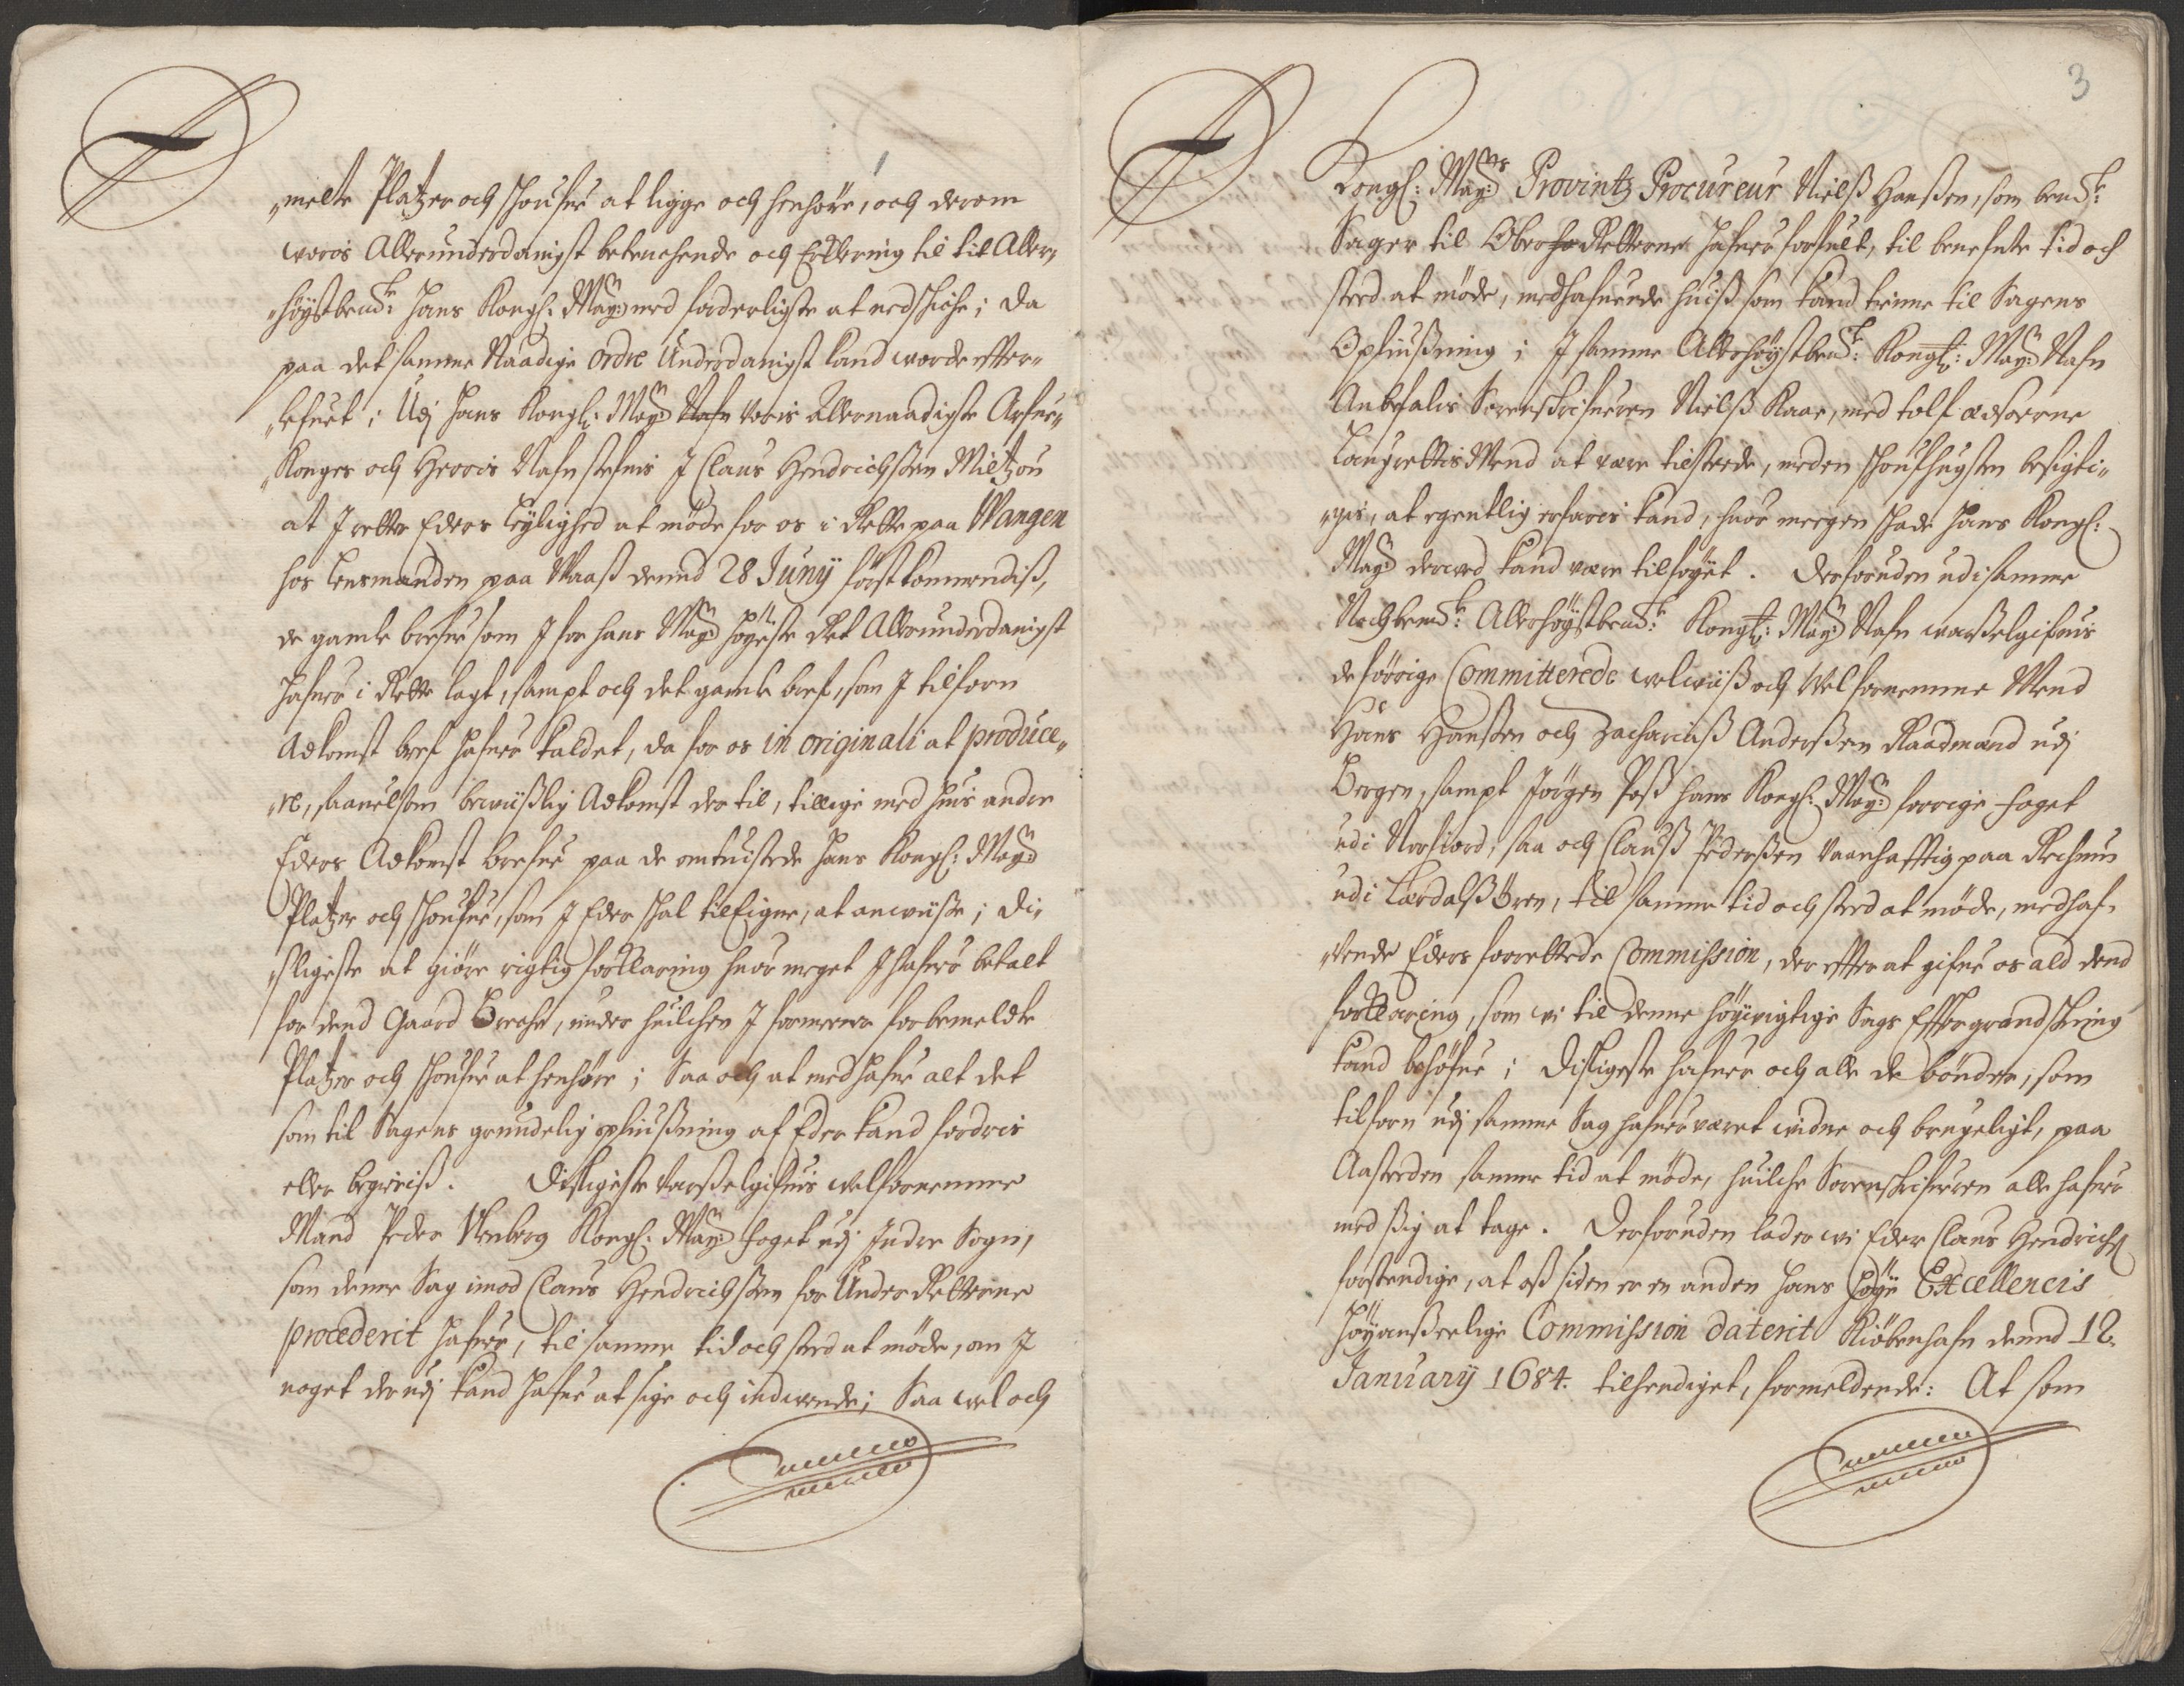 „melte Platzer och schoufue at ligge och henhöre, och derom
woris Allerunderdanigst betenchende och Erklering til til Aller„
„höystbemte: Hans Kongl: Mayts med forderligste at nedschiche; da
paa det samme Naadige ordre Underdanigst kand worde effter„
„lefuet; Udj Hans Kongl: Mayts Nafn Voris Allernaadigste Arfue„
„Konges och Herris Nafn stefnis I Claus Hendrichssen Miltzou
at I retter Eders leylighed at möde for os i Rette paa Wangen
hos Lensmanden paa Waass dennd 28 Junij först kommendiss,
de gamle brefue som I for hans Mayts höyeste Ret Allerunderdanigst
hafuer i Rette lagt, sampt och det gamle bref, som I tilforn
Adkomst bref hafuer kaldet, da for os in originali at produce„
„re, saauelsom bewiisslig Adkomst der til, tillige med huis andre
Eders Adkomst brefue paa de omtuistede Hans Kongl: Mayts
Platzer och schoufue, som I Eder schal tilEigne, at anwiisse; di„
„sligeste at giöre rigtig forklaring huor meget I hafuer betalt
for dend Gaard Breche, under huilchen I formener forbemeldte
Platzer och schoufue at henhöre; Saa och at medhafue alt det
som til Sagens grundelig opliussning af Eder kand fordris
eller begieriss. Disligeste Varsselgifuis welfornemme
Mand Peder Wenberg Kongl: Mayts foget udj Indre Sogn,
som denne Sag imod Claus Hendrichssen for Under Retterne
procederit hafuer, til samme tid och sted at möde, om I
noget der udj kand hafue at sige och indwende; Saa wel och
3
Kongl: Mayts Provintz Procureur Nielss Hanssen, som bemte:
Sager til Ober Retterne hafuer forfult, til benefnte tid och
sted at möde, medhafuende huiss som kand tienne til Sagens
Opliussning; I samme Allerhöystbemte: Kongl: Mayts Nafn
Anbefalis Sorenskrifueren Nielss Kaae, med tolf ædsorne
Laugrettis Mend at være tilstede, meden schoufhugsten besigti„
„gis, at egentlig erfares kand, huor megen schade Hans Kongl:
Mayts derved kand være tilfoyet. Desforuden udi samme
Velbemte: Allerhöystbemte: Kongl: Mayts Nafn warsselgifuis
de förrige Committerede welwiiss och Welfornemme Mend
Hans Hanssen och Zachariass Anderssen Raadmænd udj
Bergen, sampt Jörgen Poss Hans Kongl: Mayts forrige foget
udi Norfiord, saa och Clauss Pederssen Vaanhafftig paa Rechnes
udi Lærdalssören, til samme tid och sted at möde, medhaf„
„uende Eders forrettede Commission, der effter at gifue os ald dend
forklaring, som wi til denne höywigtige Sags Effter grandskning
kand behöfue; Disligeste hafuer och alle de bönder, som
tilforn udj samme Sag hafuer været widne och brugeligt, paa
Aasteden samme tid at möde, huilche Sorenskrifueren alle hafuer
med ssig at tage. Desforuden lader wi Eder Claus Hendrichss
forstendige, at oss siden er en anden Hans Höye Excellencis
Höyansseelige Commission daterit Kiöbenhafn dennd 12.
January 1684. tilhendiget, formeldende: At som